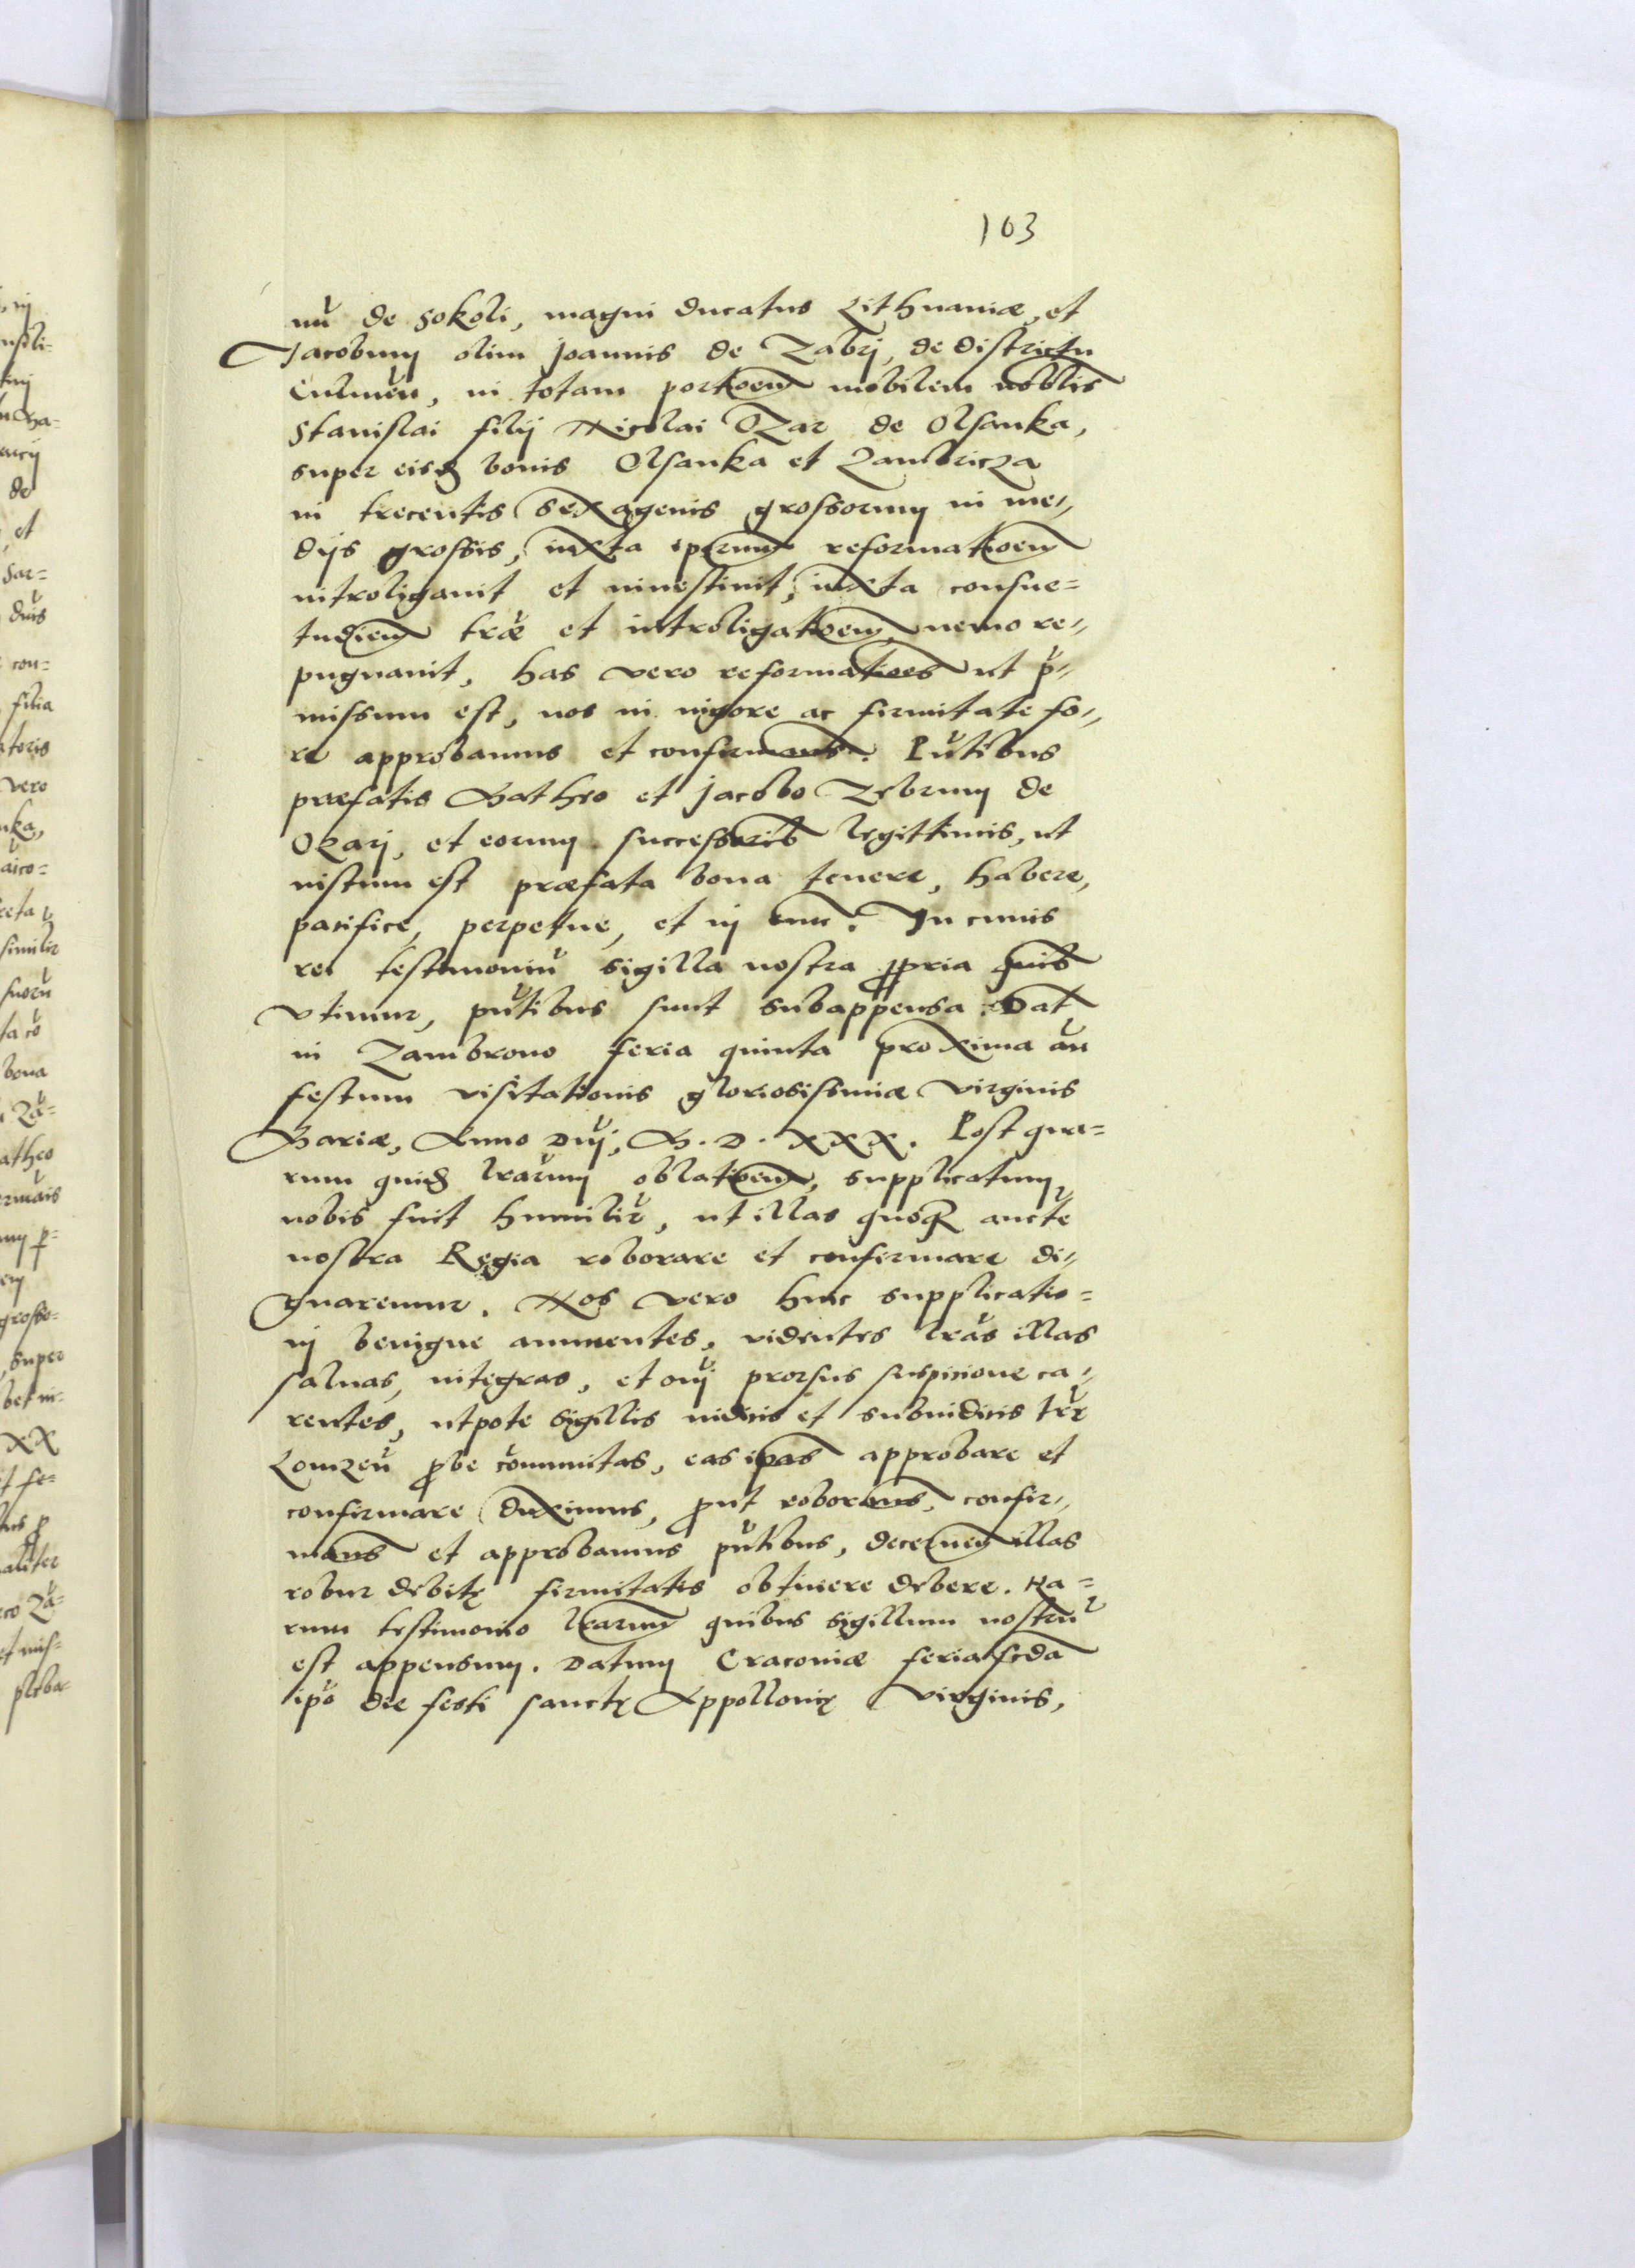 103
nũ de Sokoli, magni ducatus Lithuaniæ, et
Jacobum olim Joannis de Zabrj, de districtu
Culmeñ, in totam portioem mobilem noblis
Stanislai filij Nicolai OZar de Olsanka,
super eisdꝫ bonis Olsanka et Zambricza
in trecentis sexagenis grossorum in me„
dijs grossis, iuxta iporum reformatioem
introligauit et inuestiuit, iuxta consue=
tudiem træ et introligatioem nemo re„
pugnauit, has vero reformatioes ut p̃„
missum est, nos in uigore ac firmitate fo„
re approbamus et confirmams. Pñtibus
præfatis Matheo et Jacobo Zebrum de
OZarj, et eorum successorib legittimis, ut
uistum est præfata bona tenere, habere,
pacifice, perpetue, et in euu. In cuuis
rei testimoniũ sigilla nostra ꝓpria quib
vtimur, pñtibus sunt subappensa. Dat
in Zambrouo feria quinta proxima añ
festum visitationis gloriosissimæ virginis
Mariæ, Anno Dñj, M.D.XXX. Post qua=
rum quidꝫ lrarum oblatioem, supplicatum
nobis fuit humilir̃, ut illas quoqꝫ aucte
nostra Regia roborare et confirmare di„
gnaremur. Nos vero huic supplicatio=
nj benigne annuentes, uidentes lrãs illas
saluas, integras, et oñj prorsus suspicione ca„
rentes, utpote sigillis iudicis et subiudicis trr̃
Lomzeñ ꝓbe cõmunitas, eas ipas approbare et
confirmare duximus, ꝓut roborams, confir„
mams et approbamus pñtibus, decernen illas
robur debitę firmitatis obtinere debere. Ha=
rum testimonio lrarum quibus sigillum nostrũ
est appensum. Datum Cracouiæ feria scda
ipõ die festi sanctę Appollonię virginis,